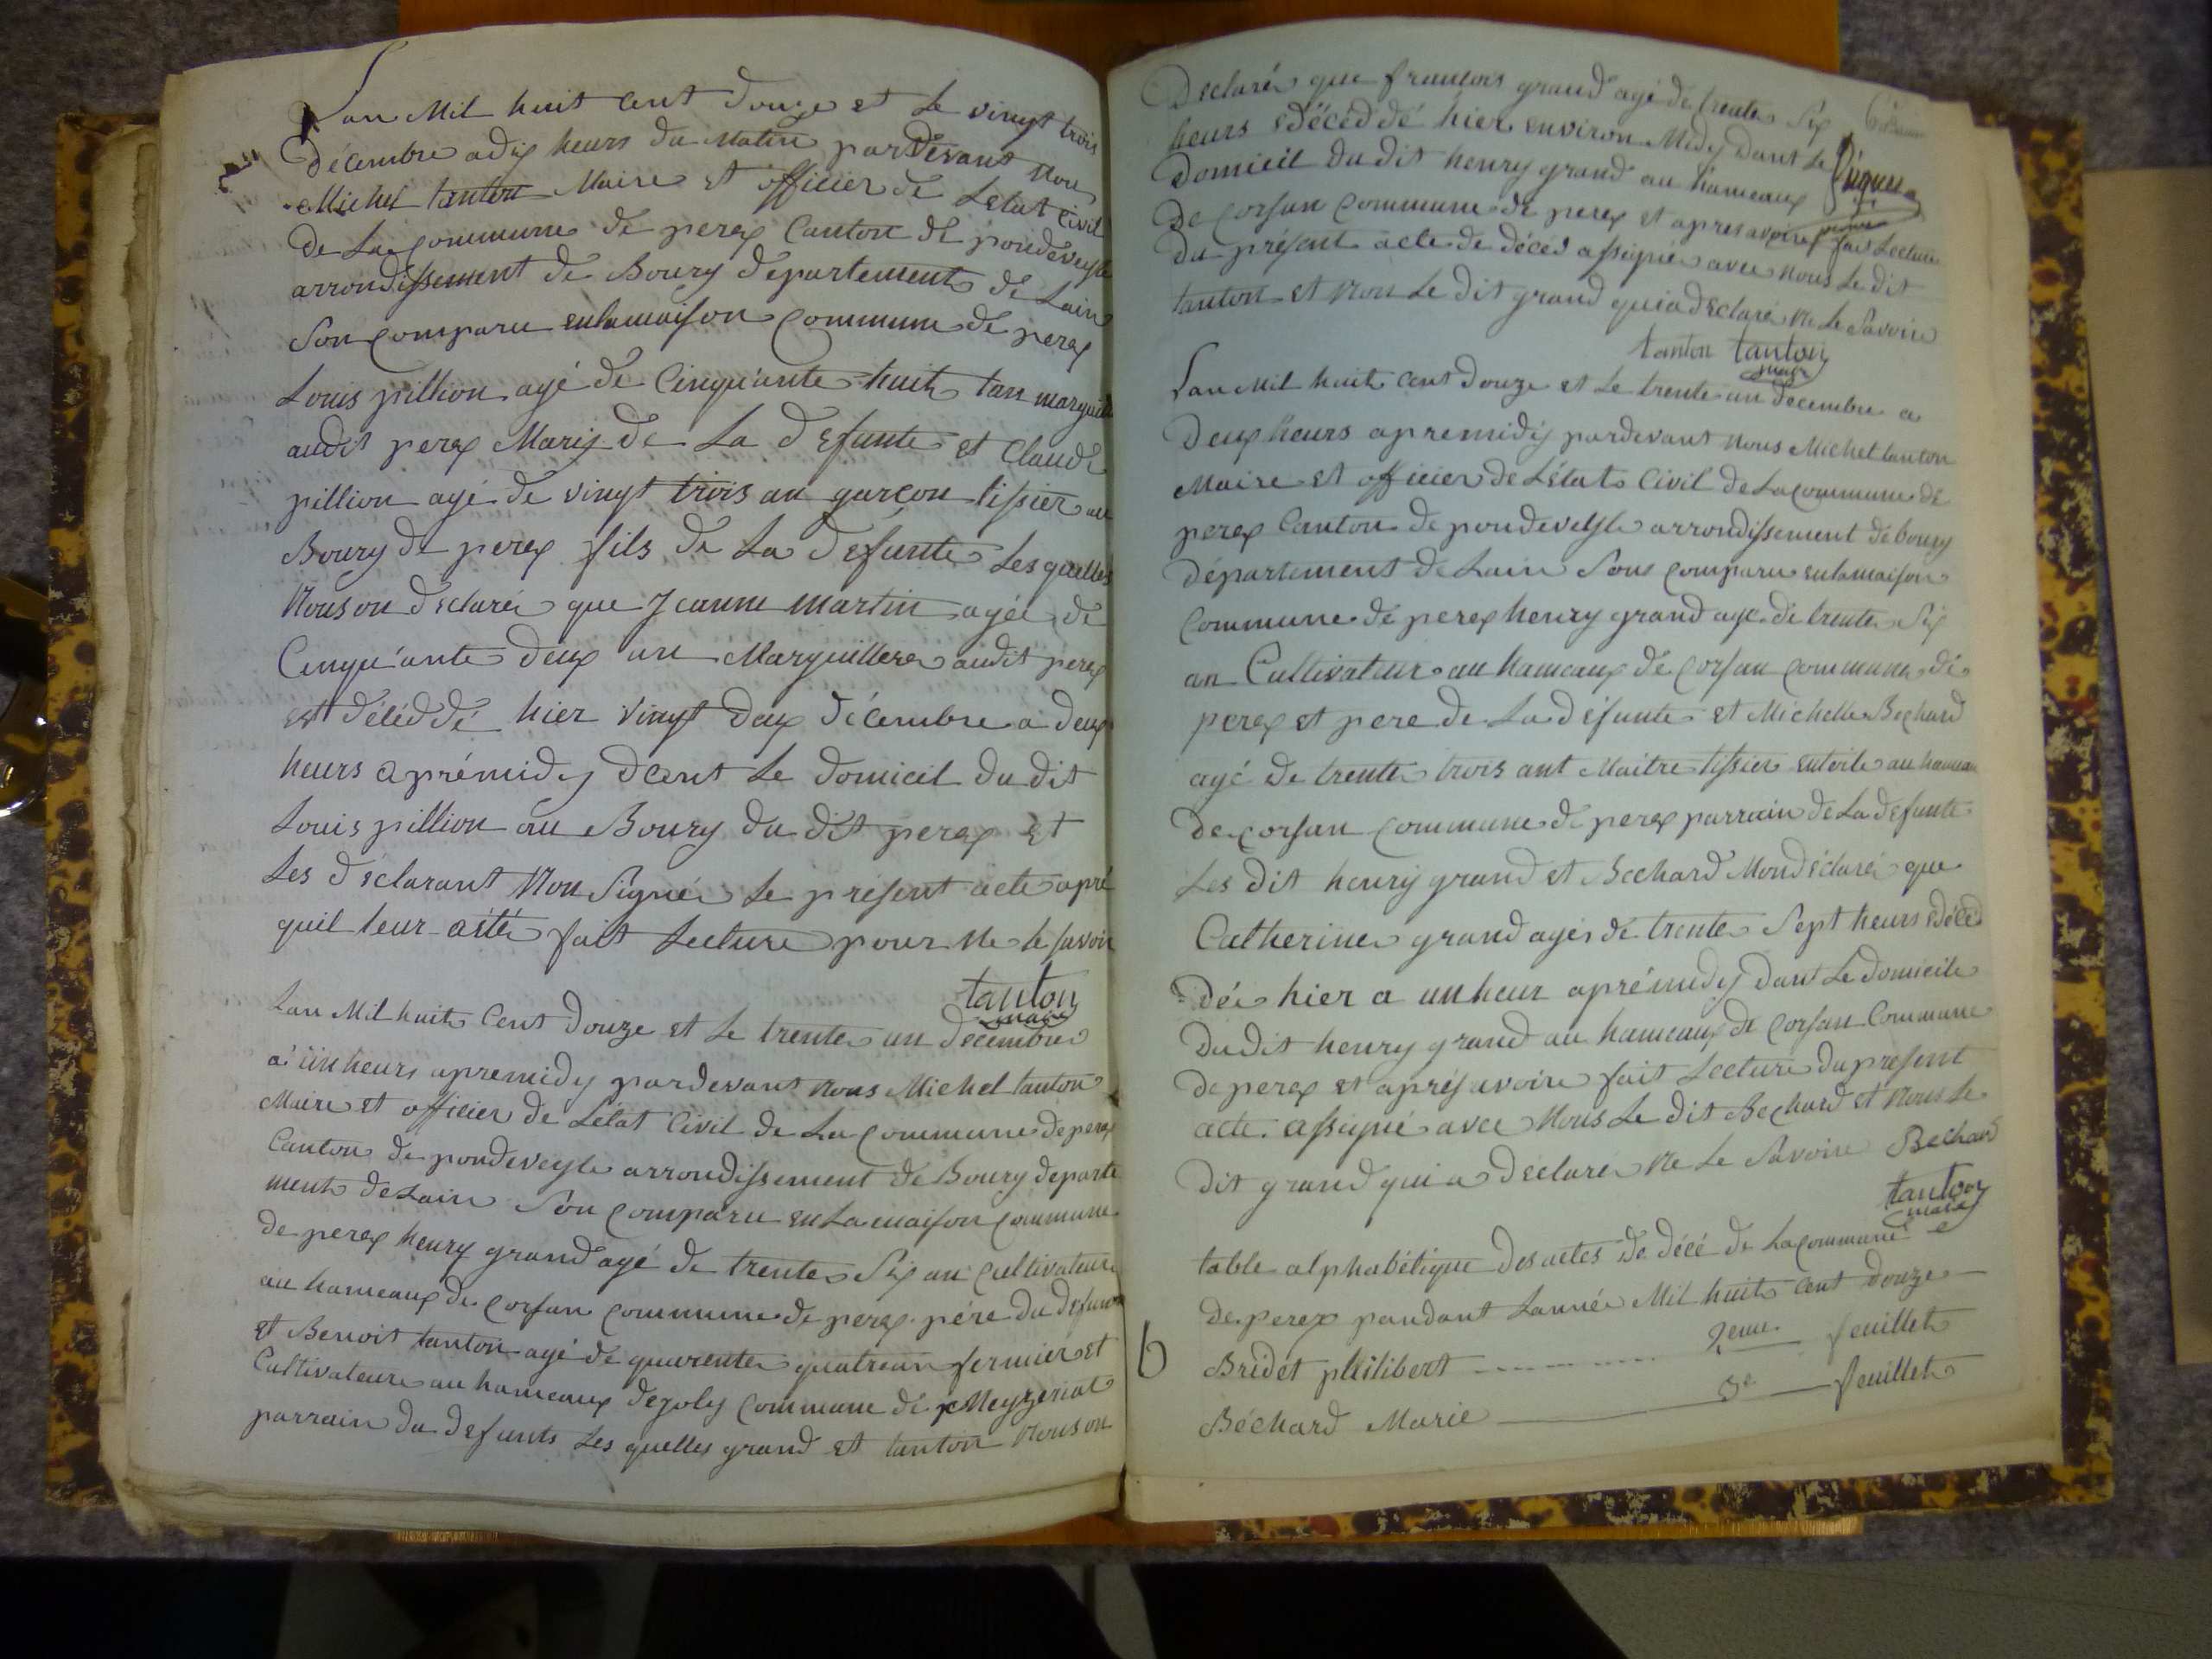 Lan Mil huit Cent douze et Le vingt trois
décembre a dix heurs du Matin pardevant Nou
Michel tanton Maire et officier de Letat Civil
de La Commune de perex Canton de pondeveyle
arrondissement de Bourg departements de Lain
Son Comparu enlamaison Commune de perex
Louis pillion agé de Cinqu'ante huit tan marguill
audit perex Mary de La defunte et Claude
pillion agé de vingt trois an garçon tissier au
Bourg de perex fils de La defunte Les quelles
Nous on declaré que Jeanne martin agée de
Cinqu'ante deux an Marguillere audit perex
est déléddé hier vingt deux décembre a deux
heurs aprémidy dant Le domicil du dit
Louis pillion au Bourg du dit perex et
Les déclarant Non Signé Le présent acte apré
quil leur aété fait Lecture pour Ne le savoir
tanton
maire
Lan Mil huit Cent douze et Le trente un décembre
a unheurs apremidy pardevant Nous Michel tanton
Maire et officier de Létat Civil de La Commune de perex
Canton de pondeveyle arrondissement de Bourg departe
ment de Lain Son Comparu en La maison Commune
de perex henry grand agé de trente Six an Cultivateur
au hameaux de Corsan Commune de perex père du defun
et Benoit tanton agé de quarente quatrean fermier et
Cultivateur au hameaux depoly Commune de Meyzeriat
parrain du defunts Les quelles grand et tanton Nous on
declaré que francois grand agé de trente Six
heurs edécéddé hier environ Midy dant Le
Domicil du dit henry grand au hameaux
de Corsan Commune de perex et apres avoire fait Lecture
du présent acte de déces assigné avec Nous Le dit
tanton et Non Le dit grand quia declare Ne Le Savoire
tanton tanton
maire
Lan Mil huit Cent douze et Le trente un decembre a
deux heurs apremidy pardevant Nous Michel tanton
Maire et officier de Létat Civil de La Commune de
perex Canton de pondeveyle arrondissement de bourg
département de Lain Sont Comparu enlamaison
Commune de perex henry grand agé de trente Six
an Cultivateur au hameaux de Corsan Commune de
perex et pere de La défunte et Michelle Bechard
agé de trente trois ant Maitre tissier entoile au hameau
de Corsan Commune de perex parrain de La defunte
Les dit henry grand et Bechard Mondéclaré que
Catherine grand agés de trente Sept heurs edécé
dée hier a unheur aprémidy dant Le domicile
du dit henry grand au hameaux de Corsan Commune
de perex et aprés avoire fait Lecture du present
acte assigné avec Nous Le dit Bechard et Nous Le
dit grand qui a declaré Ne Le Savoire Bechard
tanton
maire
table alphabétique des actes de décé de La commune
de perex pandant Lannée Mil huit Cent douze
Bridet philibert 2eme feuillet
Béchard Marie 3e feuillet